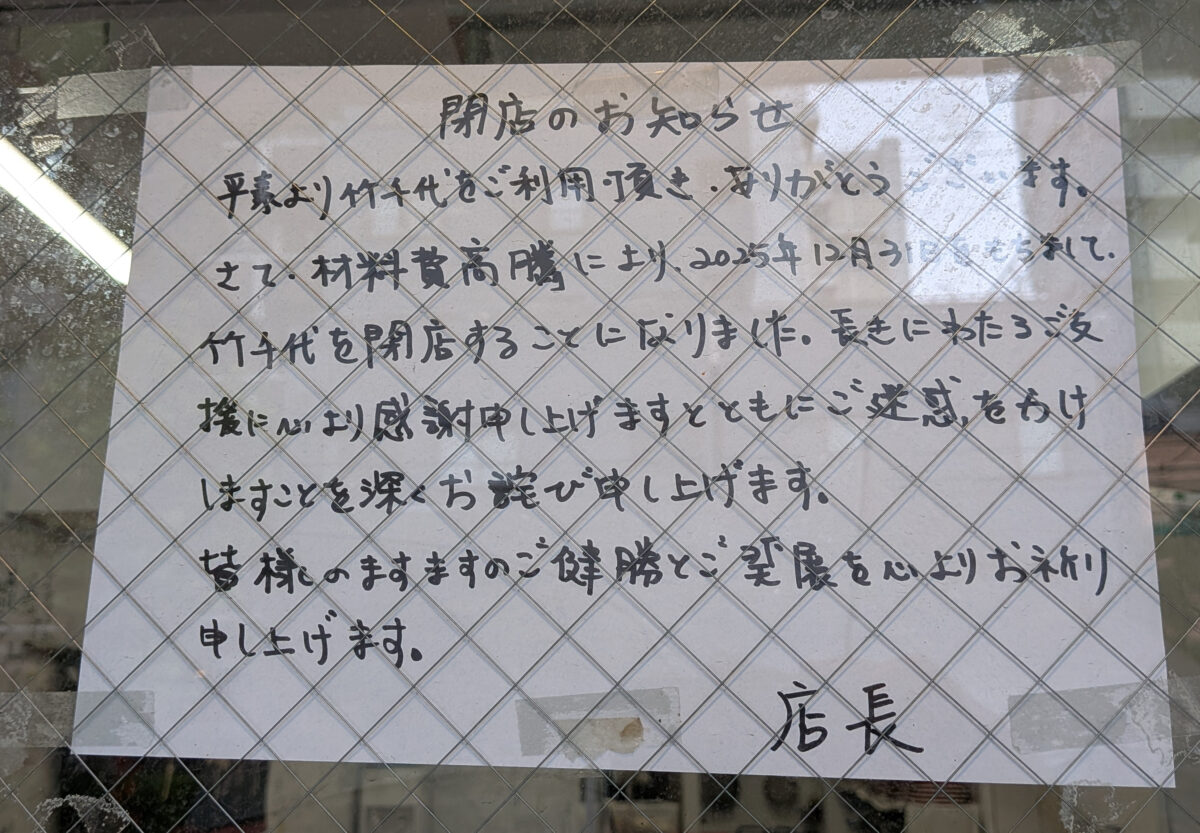 閉店のお知らせ
平素より竹千代をご利用頂き、ありがとうございます。
さて、材料費高騰により、2025年12月31日をもちまして、
竹千代を閉店することになりました。長きにわたるご支
援に心より感謝申し上げますとともにご迷惑をおかけ
しますことを深くお詫び申し上げます。
皆様のますますのご健勝とご発展を心よりお祈り
申し上げます。
店長